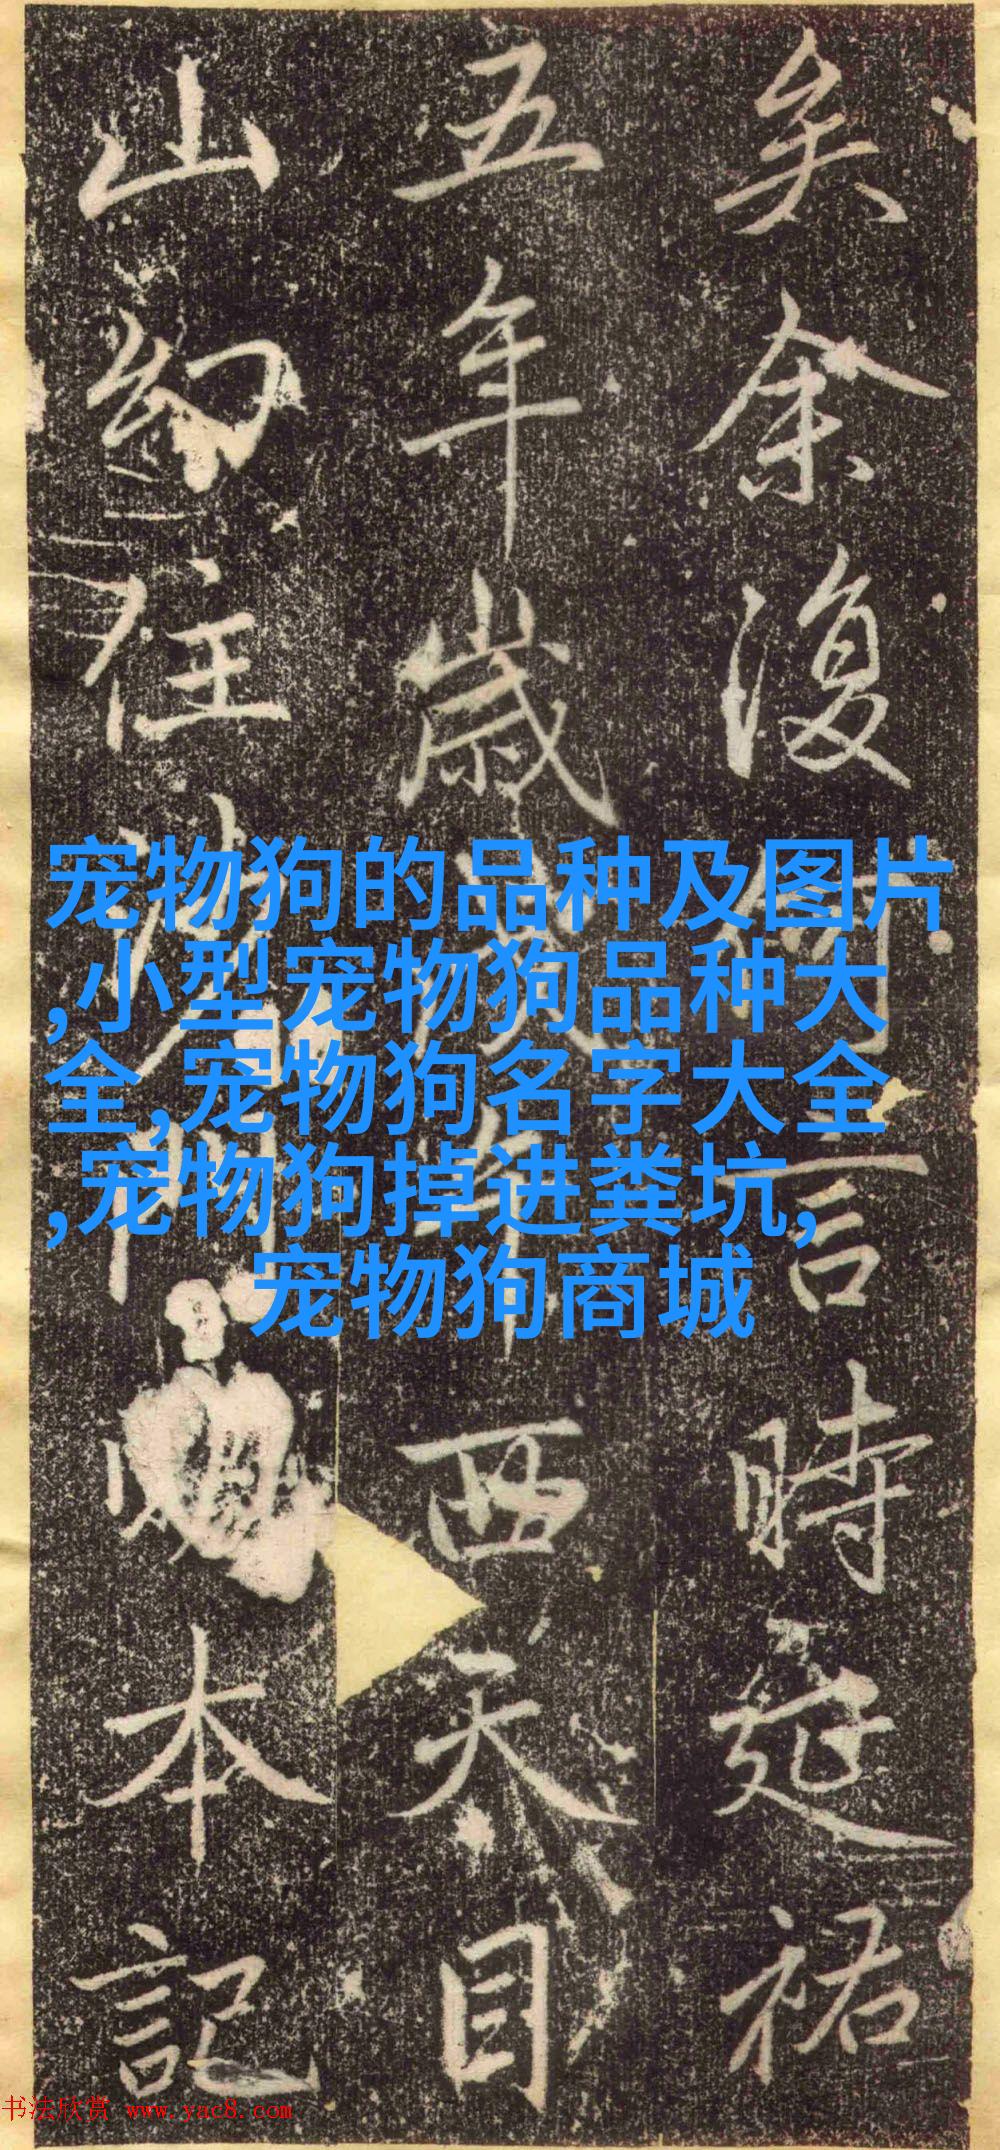 矣余復何言時延祐
五年歲戊午西天目
山幻住沙門明本記
宠物狗的品种及图片
,小型宠物狗品种大
全,宠物狗名字大全
,宠物狗掉进粪坑,
宠物狗商城
书法欣赏 www.yac8.com